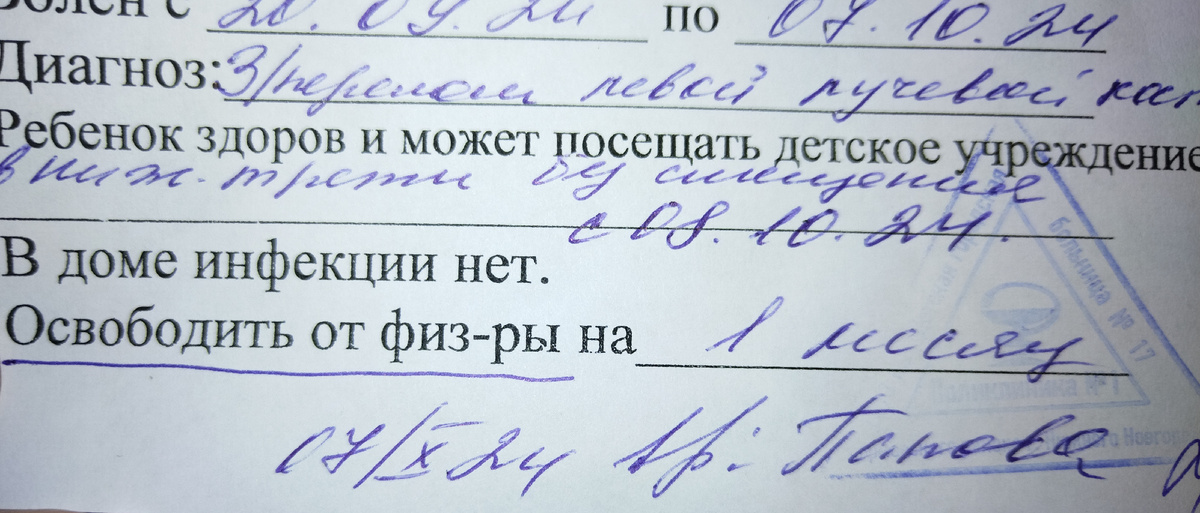 болен с 20.09.24 по 07.10.24
Диагноз: З/перелом левой лучевой кос
Ребенок здоров и может посещать детское учреждение
в ниж. трети без смещения
с 08.10.24.
В доме инфекции нет.
Освободить от физ-ры на 1 месяц
07/X 24 Вр: Попова
больница № 17
Поликлиника № 1
Новгор